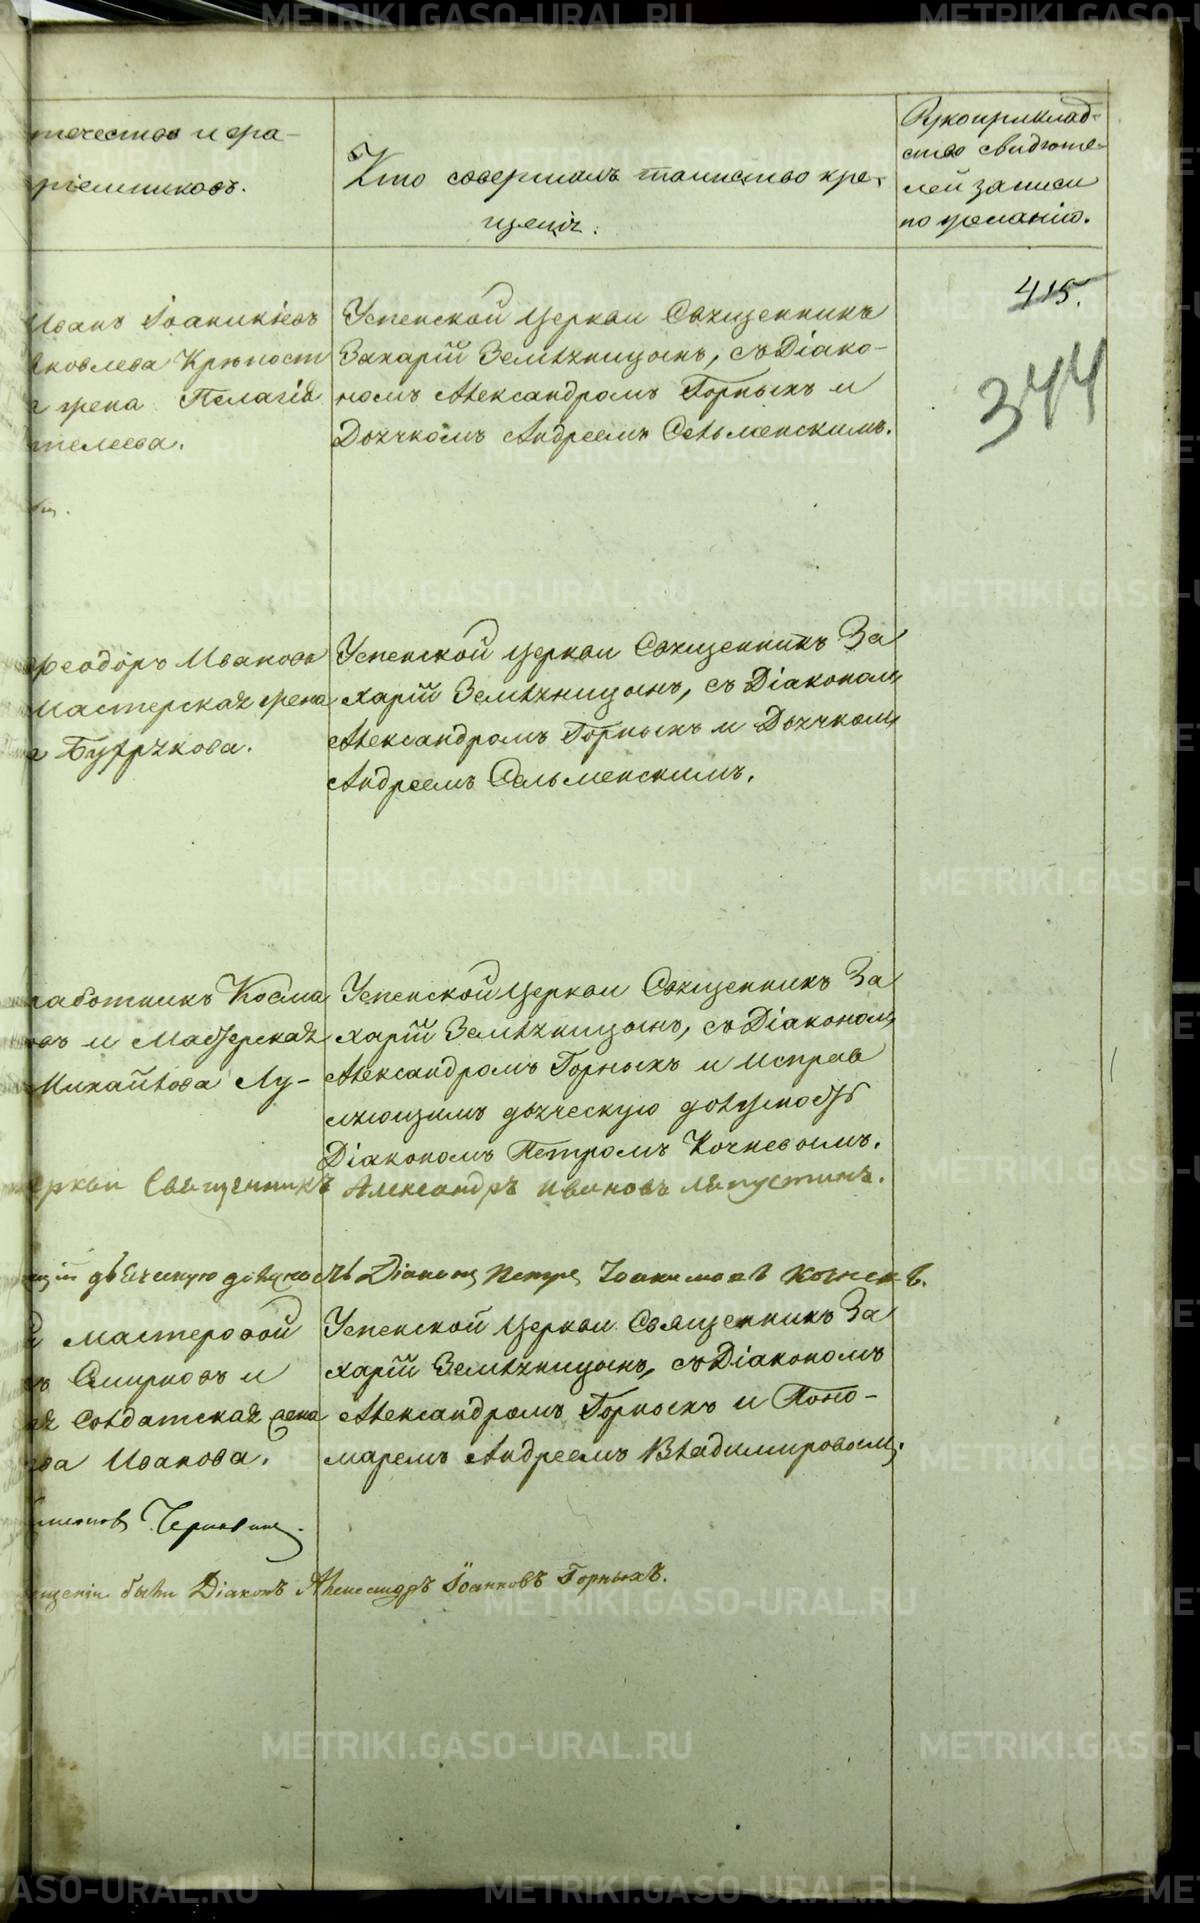 течество и фа-
ріемниковъ.
Кто совершалъ таинство кре-
щенія.
Рукоприклад-
ство свидѣте-
лей записи
по желанію.
415.
344
Иванъ Іоаникіевъ
Яковлева Крѣпост
жена Пелагія
телеева.
Успенской Церкви Священникъ
Захарій Земляницынъ, съ Діако-
номъ Александромъ Горныхъ и
Дьячкомъ Андреемъ Сельменскимъ.
Ѳеодоръ Ивановъ
Мастерская жена
Бурчкова.
Успенской Церкви Священникъ За
харій Земляницынъ, съ Діакономъ
Александромъ Горныхъ и Дьячкомъ
Андреемъ Сельменскимъ.
работникъ Косма
овъ и Мастерская
Михайлова Лу-
Успенской Церкви Священникъ За
харій Земляницынъ, съ Діакономъ
Александромъ Горныхъ и исправ
ляющимъ дьяческую должность
Діакономъ Петромъ Кочневымъ.
еркви Священникъ Александръ Ивановъ Лапустинъ.
щій дьяческую должность Діаконъ Петръ Іоакимовъ Кочневъ.
мастеровой
въ Смирновъ и
ая Солдатская жена
ва Иванова.
Успенской Церкви Священникъ За
харій Земляницынъ, съ Діакономъ
Александромъ Горныхъ и Поно-
маремъ Андреемъ Владимировымъ.
Чернавинъ.
ещеніи были Діаконъ Александръ Іоанновъ Горныхъ.
METRIKI.GASO-URAL.RU